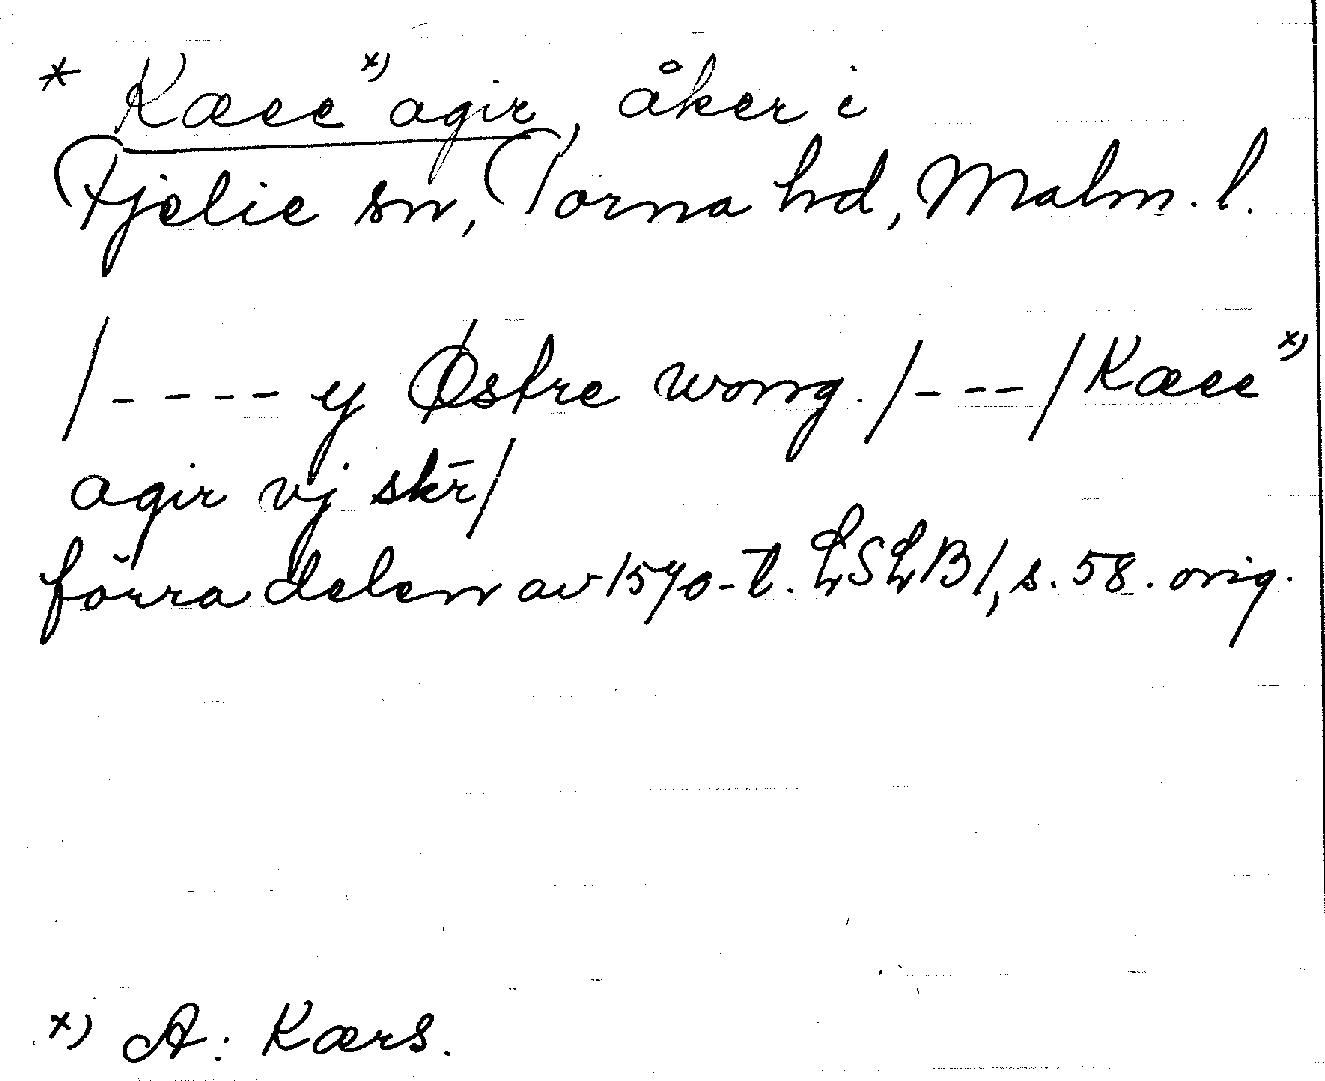 * Kæee x) agir, åker i
Fjelie sn, Torna hd, Malm. l.
/---- y Østre wong. /---/ Kæee x)
agir vj skr̄/
förra delen av 1570-t. LSLB1, s. 58. orig.
x) A: Kærs.